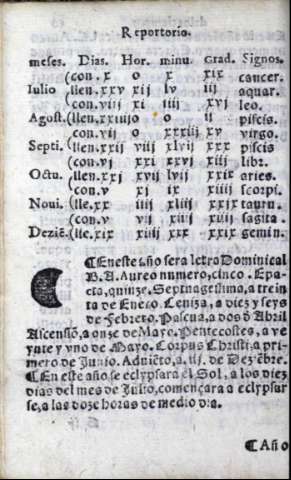 Reportorio.
meses. Dias. Hor. minu. Grad. Signos.
(con. x o x xix cancer.
Iulio (llen. xxv xij lv iij aquar.
(con. viij xj iiij xvj leo.
Agost. (llen. xxiiij o o ij piscis.
(con. vij o xxxiij xv virgo.
Septi. (llen. xxij viij xlvij xxx piscis
(con. vj xxj xxvj xiij libr.
Octu. (llen. xxj xvij lvij xxix aries.
(con. v xj ix xiiij scorpi.
Noui. (lle. xx iij xliij xxix taurn.
(con. v vij xiij xvij sagita.
Dezie. (lle. xix xiij xx xxix gemin.
¶ En este año sera letra Dominical
B. A. Aureo numero, cinco. Epa-
cta, quinze. Septuagessima, a trein
ta de Enero. Ceniza, a diez y seys
de Febrero. Pascua, a dos d̃ Abril
Ascensiõ, a onze de Mayo. Pentecostes, a ve
ynte y vno de Mayo. Corpus Christi, a pri
mero de Iunio. Aduiẽto, a. iij. de Deziẽbre.
¶ En este año se eclypsara el Sol, a los diez
dias del mes de Iulio, començara a eclypsar
se, a las doze horas de medio dia.
¶ Año